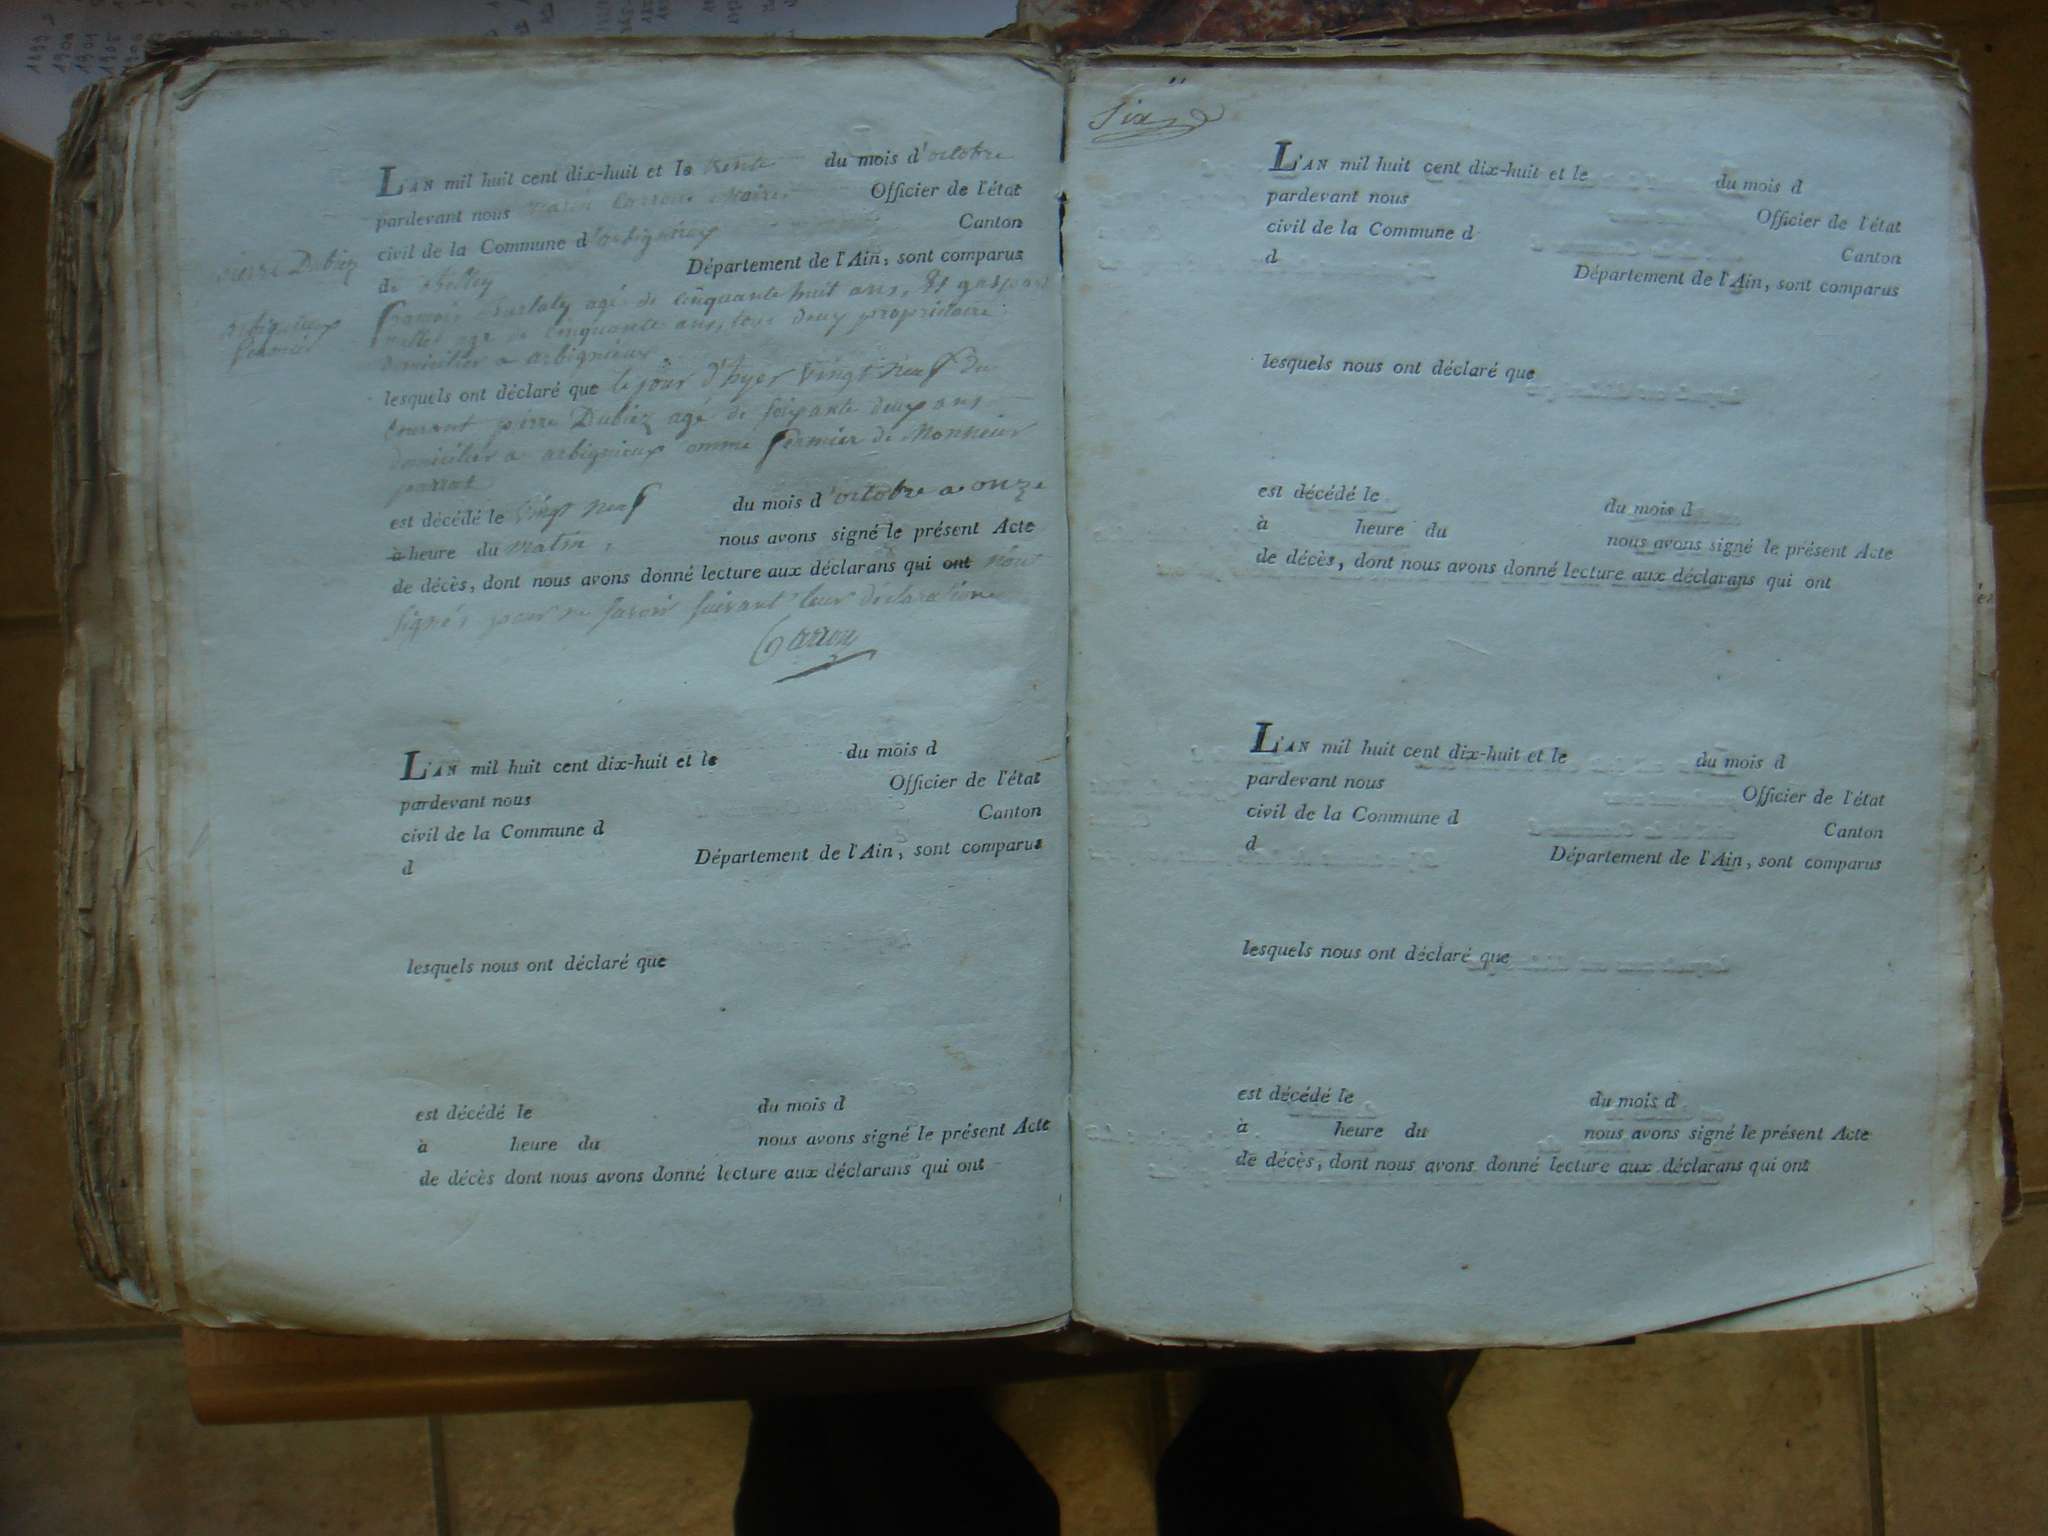 L'AN mil huit cent dix-huit et le trente du mois d'octobre
pardevant nous Carron Maire Officier de l'état
civil de la Commune d'arbignieux Canton
de Belley Département de l'Ain, sont comparus
françois agé de cinquante huit ans, Et gaspard
mollet agé de cinquante ans, tous deux propriétaire
domicilier a arbignieux
lesquels ont déclaré que le jour d'hyer vingt neuf du
courant pierre Dubiez agé de soixante deux ans
domicilier a arbignieux comme fermier de Monsieur
parrat
est décédé le vingt neuf du mois d'octobre a onze
à heure du matin, nous avons signé le présent Acte
de décès, dont nous avons donné lecture aux déclarans qui ont nont
signés pour ne savoir suivant leur déclaration
Carron
pierre Dubiez
arbignieux
fermier
L'AN mil huit cent dix-huit et le du mois d
pardevant nous Officier de l'état
civil de la Commune d Canton
d Département de l'Ain, sont comparus
lesquels nous ont déclaré que
est décédé le du mois d
à heure du nous avons signé le présent Acte
de décès dont nous avons donné lecture aux déclarans qui ont
Six
L'AN mil huit cent dix-huit et le du mois d
pardevant nous Officier de l'état
civil de la Commune d Canton
d Département de l'Ain, sont comparus
lesquels nous ont déclaré que
est décédé le du mois d
à heure du nous avons signé le présent Acte
de décès, dont nous avons donné lecture aux déclarans qui ont
L'AN mil huit cent dix-huit et le du mois d
pardevant nous Officier de l'état
civil de la Commune d Canton
d Département de l'Ain, sont comparus
lesquels nous ont déclaré que
est décédé le du mois d
à heure du nous avons signé le présent Acte
de décès, dont nous avons donné lecture aux déclarans qui ont